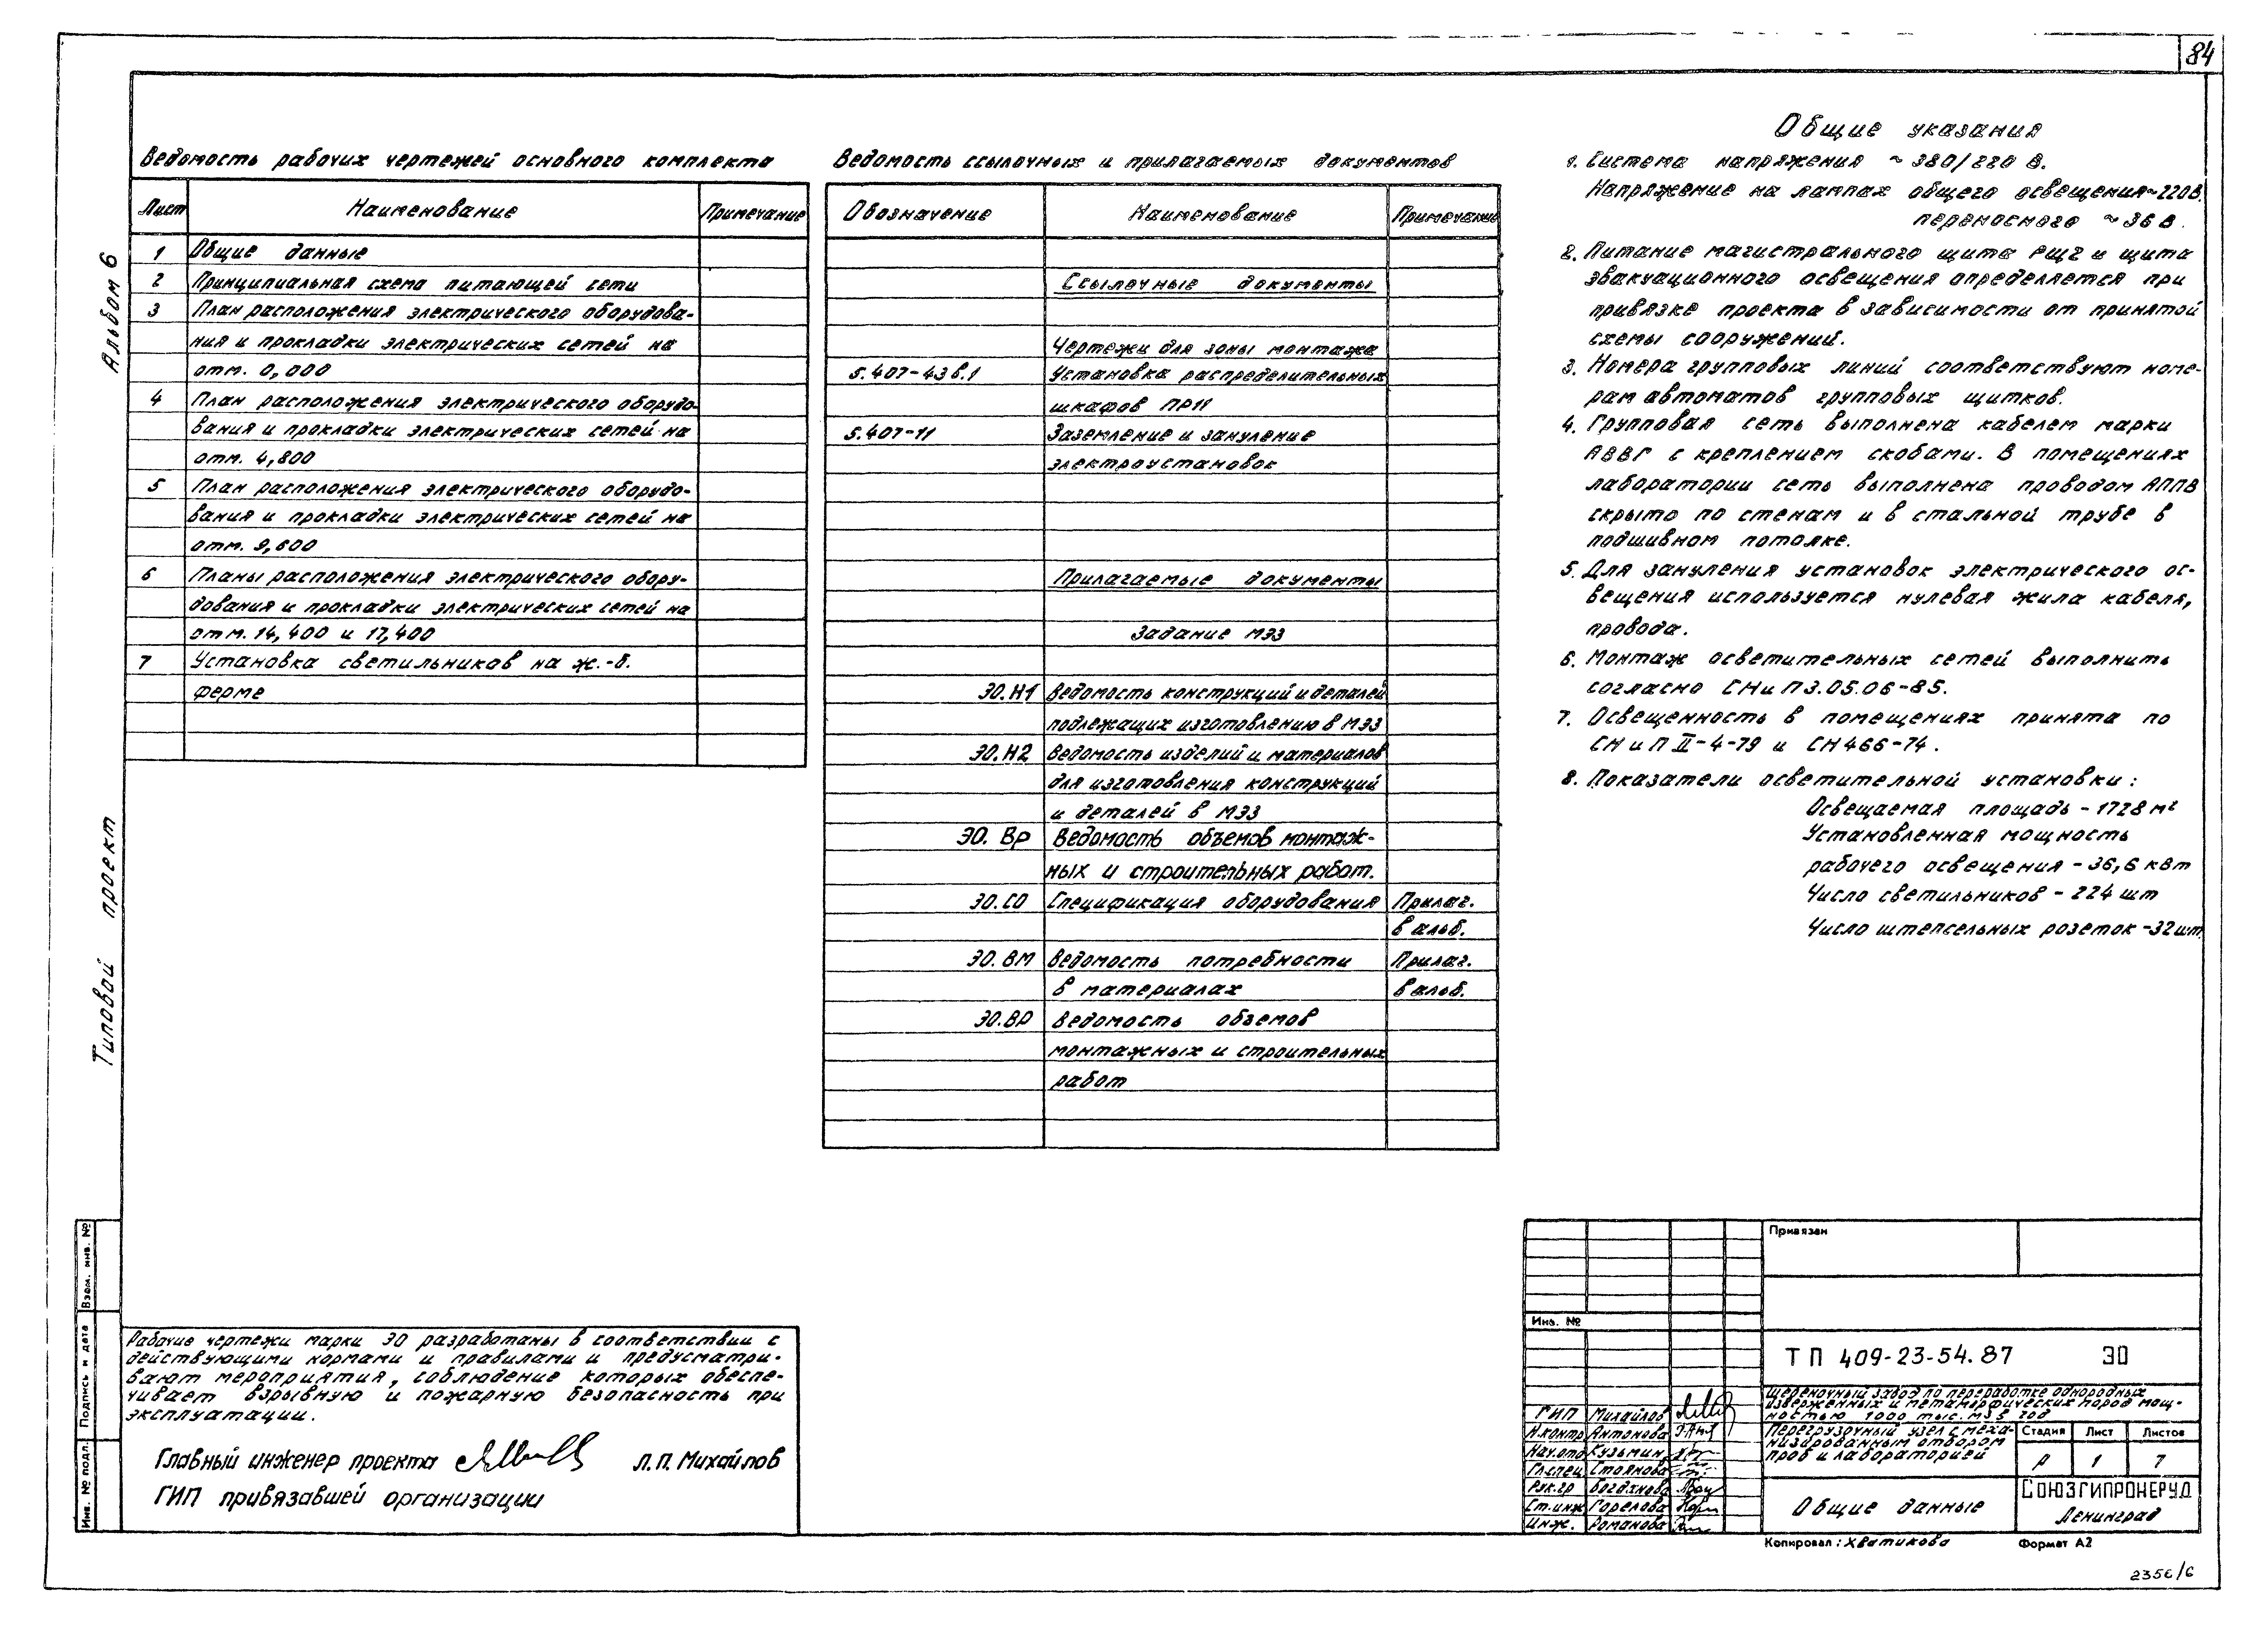 84
Альбом 6
Типовой проект
Ведомость рабочих чертежей основного комплекта
Лист Наименование Примечание
1 Общие данные
2 Принципиальная схема питающей сети
3 План расположения электрического оборудова-
ния и прокладки электрических сетей на
отм. 0,000
4 План расположения электрического оборудо-
вания и прокладки электрических сетей на
отм. 4,800
5 План расположения электрического оборудо-
вания и прокладки электрических сетей на
отм. 9,600
6 Планы расположения электрического обору-
дования и прокладки электрических сетей на
отм. 14,400 и 17,400
7 Установка светильников на ж.-б.
ферме
Ведомость ссылочных и прилагаемых документов
Обозначение Наименование Примечание
Ссылочные документы
Чертежи для зоны монтажа
5.407-43 в.1 Установка распределительных
шкафов ПР11
5.407-11 Заземление и зануление
электроустановок
Прилагаемые документы
Задание МЭЗ
ЭО.Н1 Ведомость конструкций и деталей
подлежащих изготовлению в МЭЗ
ЭО.Н2 Ведомость изделий и материалов
для изготовления конструкций
и деталей в МЭЗ
ЭО. ВР Ведомость объемов монтаж-
ных и строительных работ.
ЭО.СО Спецификация оборудования Прилаг.
в альб.
ЭО.ВМ Ведомость потребности Прилаг.
в материалах в альб.
ЭО.ВР Ведомость объемов
монтажных и строительных
работ
Общие указания
1. Система напряжения ~ 380/220 В.
Напряжение на лампах общего освещения ~220В.
переносного ~ 36 В.
2. Питание магистрального щита РЩ2 и щита
эвакуационного освещения определяется при
привязке проекта в зависимости от принятой
схемы сооружений.
3. Номера групповых линий соответствуют номе-
рам автоматов групповых щитков.
4. Групповая сеть выполнена кабелем марки
АВВГ с креплением скобами. В помещениях
лаборатории сеть выполнена проводом АППВ
скрыто по стенам и в стальной трубе в
подшивном потолке.
5. Для зануления установок электрического ос-
вещения используется нулевая жила кабеля,
провода.
6. Монтаж осветительных сетей выполнить
согласно СНиП 3.05.06-85.
7. Освещенность в помещениях принята по
СНиП II-4-79 и СН 466-74.
8. Показатели осветительной установки:
Освещаемая площадь - 1728 м²
Установленная мощность
рабочего освещения - 36,6 кВт
Число светильников - 224 шт
Число штепсельных розеток - 32 шт.
Рабочие чертежи марки ЭО разработаны в соответствии с
действующими нормами и правилами и предусматри-
вают мероприятия, соблюдение которых обеспе-
чивает взрывную и пожарную безопасность при
эксплуатации.
Главный инженер проекта Л.П. Михайлов
ГИП привязавшей организации
Взам. инв. №
Подпись и дата
Инв. № подл.
Привязан
Инв. №
ТП 409-23-54.87 ЭО
Щебеночный завод по переработке однородных
изверженных и метаморфических пород мощ-
ностью 1000 тыс. м3 в год
ГИП Михайлов
Н.контр Антонова
Нач.отд Кузьмин
Гл.спец Стоянова
Рук.гр Богданова
Ст.инж Горелова
Инж. Романова
Перегрузочный узел с меха-
низированным отбором
проб и лабораторией
Стадия Лист Листов
Р 1 7
Общие данные
СОЮЗГИПРОНЕРУД
Ленинград
Копировал: Хватикова Формат А2
2356/6